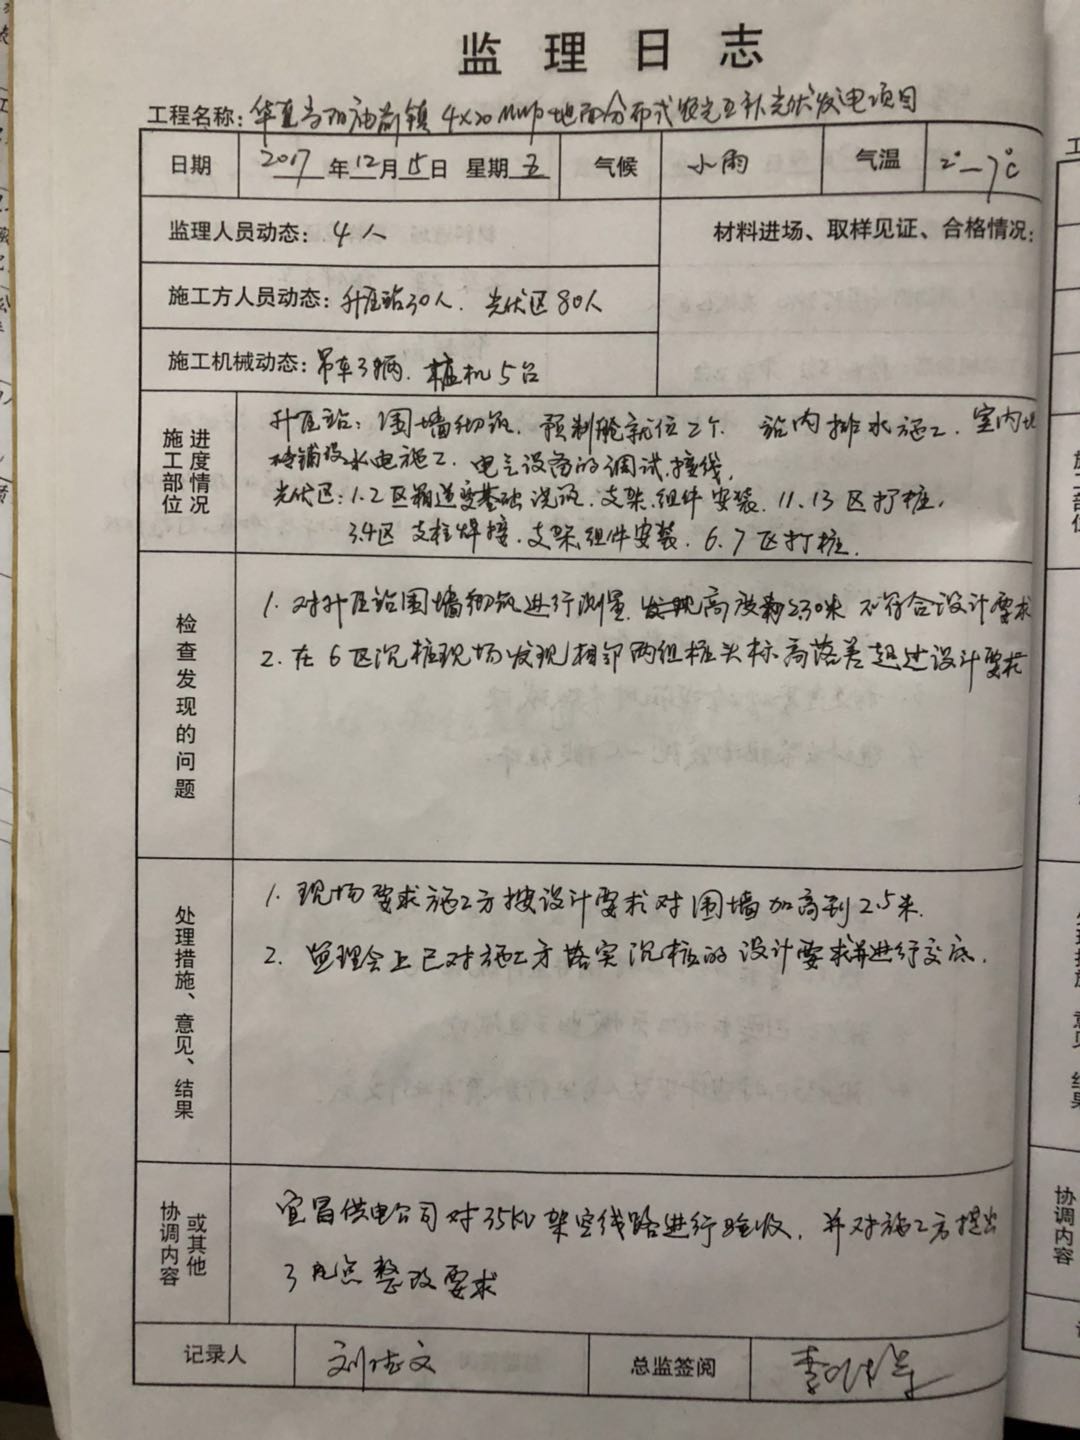 监理日志
工程名称：华直当阳油前镇4×20MWp地面分布式农光互补光伏发电项目
日期 2017年12月15日 星期五 气候 小雨 气温 2°—7℃
监理人员动态：4人
材料进场、取样见证、合格情况：
施工方人员动态：升压站30人．光伏区80人
施工机械动态：吊车3辆．桩机5台
施工部位进度情况
升压站：围墙砌筑．预制舱就位2个．站内排水施工．室内地
砖铺设水电施工．电气设备的调试．接线，
光伏区：1.2区箱逆变基础浇筑．支架．组件安装．11.13区打桩，
3.4区支柱焊接．支架．组件安装．6.7区打桩．
检查发现的问题
1. 对升压站围墙砌筑进行测量．发现高度为2.30米不符合设计要求
2. 在6区沉桩现场发现相邻两组桩头标高落差超过设计要求
处理措施、意见、结果
1. 现场要求施工方按设计要求对围墙加高到2.5米．
2. 监理会上已对施工方落实沉桩的设计要求并进行交底．
协调内容或其他
宜昌供电公司对35KV架空线路进行验收．并对施工方提出
了几点整改要求
记录人 刘 文 总监签阅 李